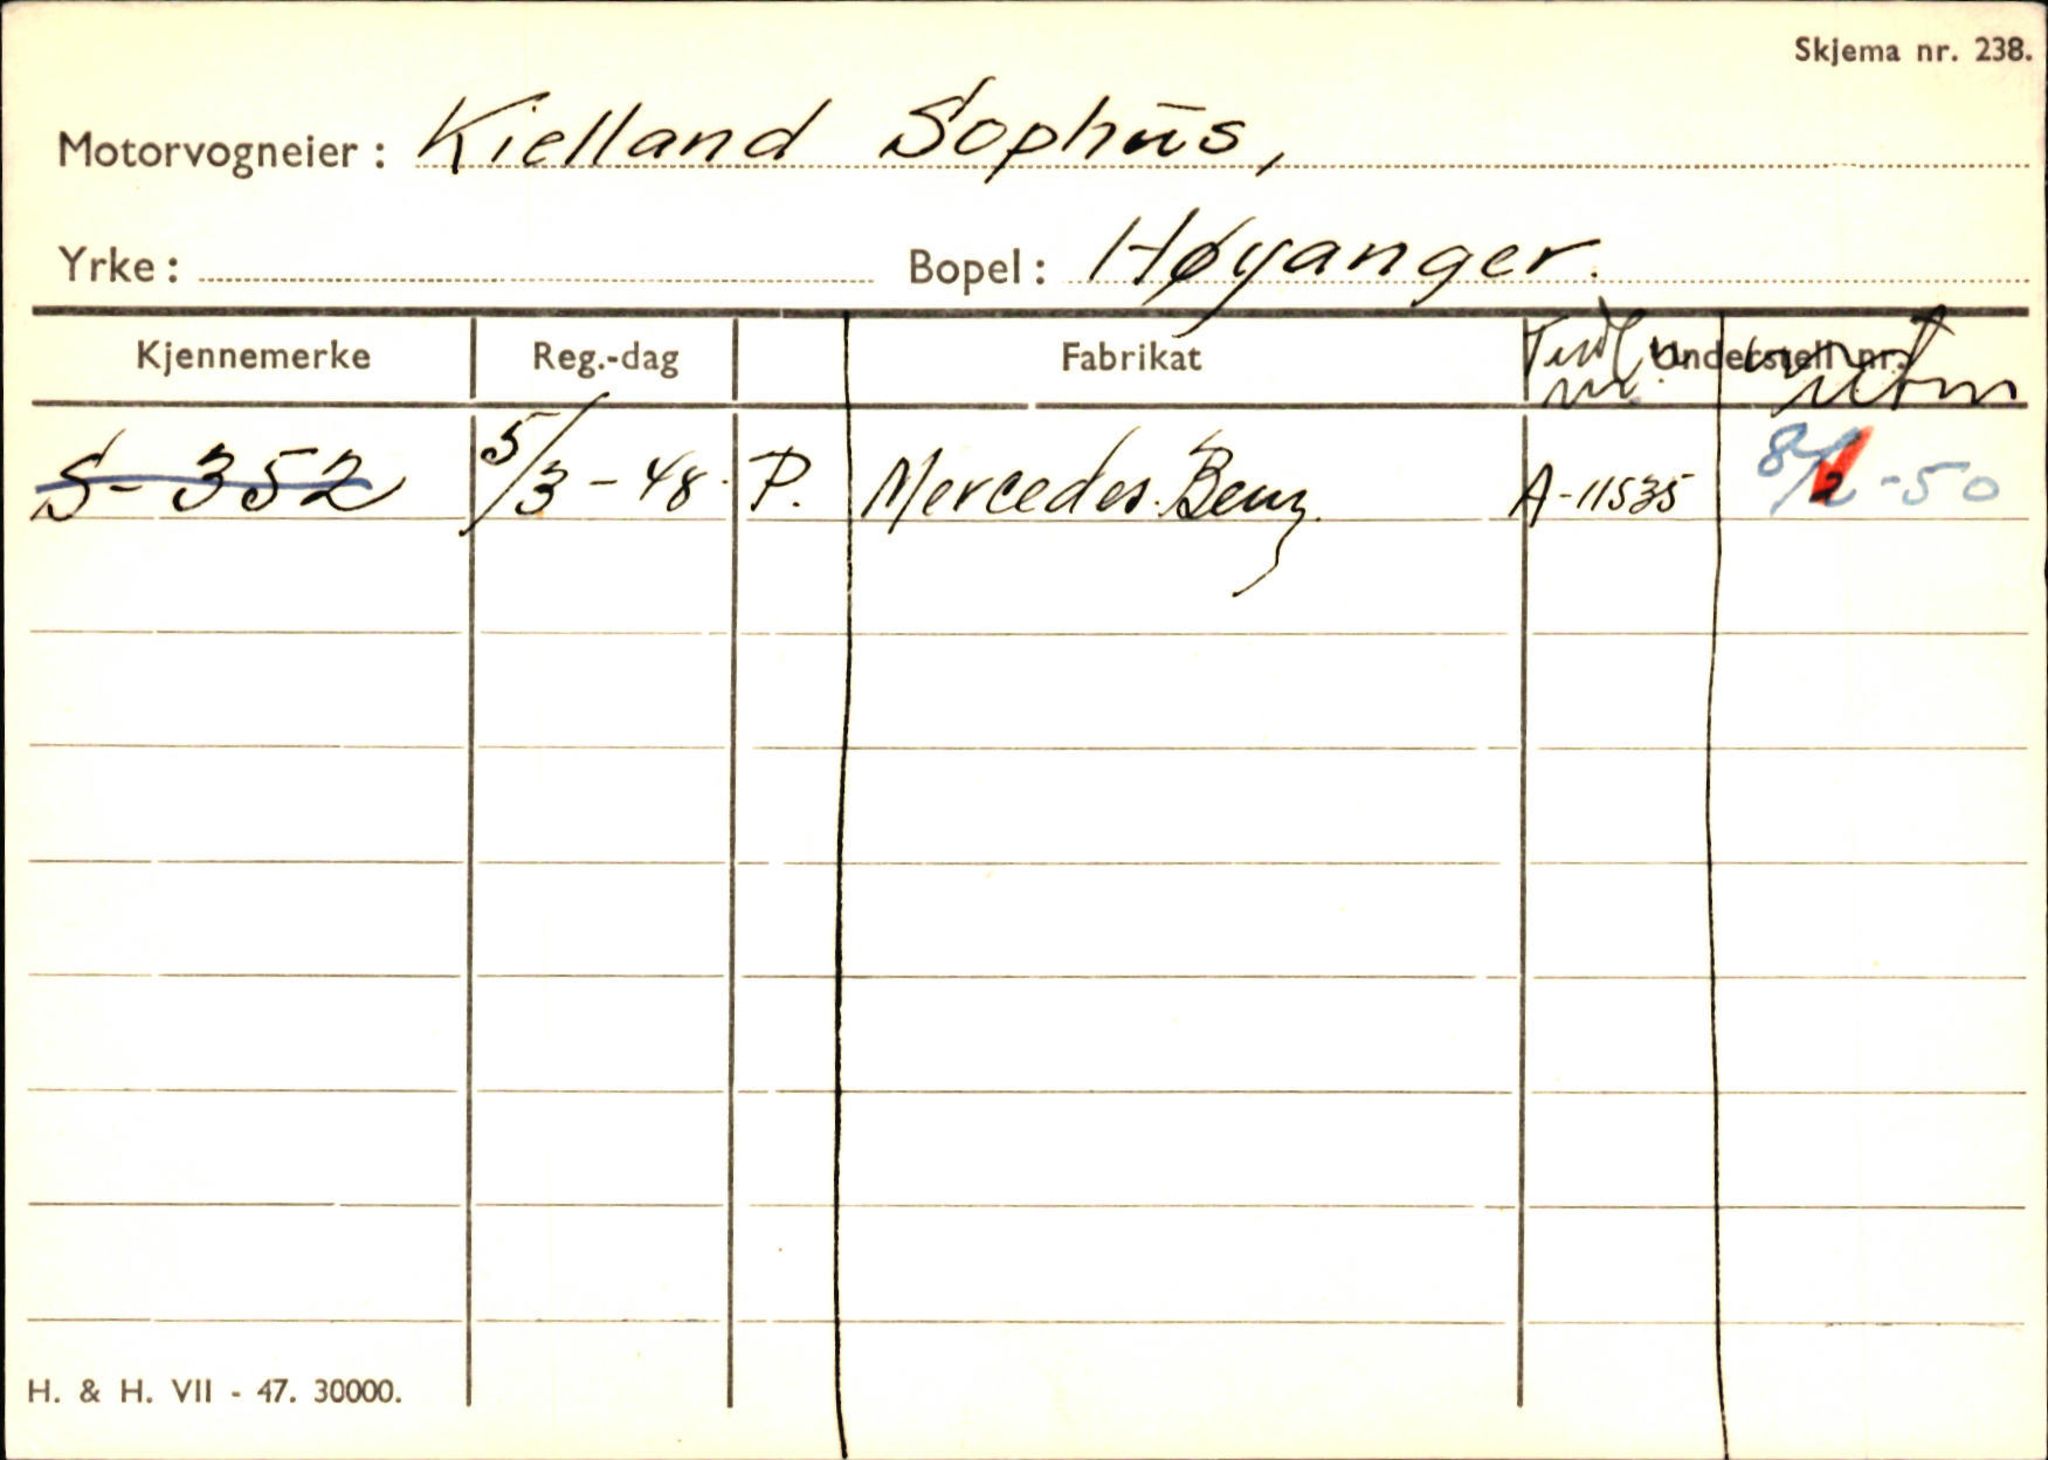 Skjema nr. 238.
Motorvogneier: Kielland Sophus,
Yrke: Bopel: Høyanger.
Kjennemerke Reg.-dag Fabrikat Tidl. nr. Understell nr.
S-352 5/3-48. P. Mercedes-Benz. A-11535 8/2-50
H. & H. VII - 47. 30000.